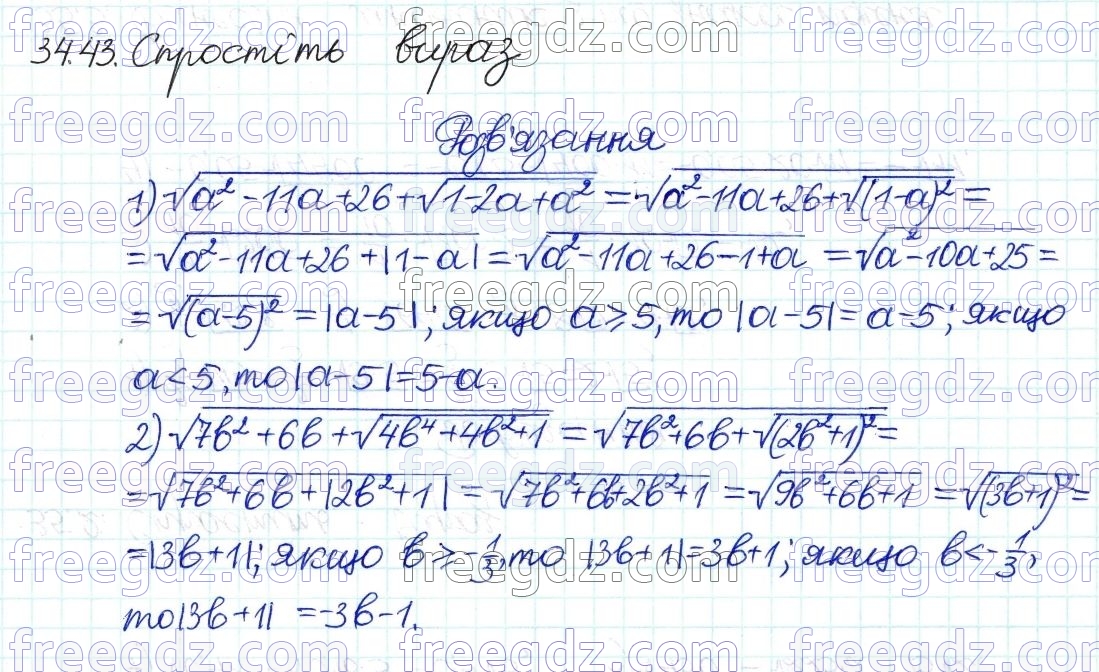 34.43. Спростіть вираз
Розв'язання
1) √(a² - 11a + 26 + √(1 - 2a + a²)) = √(a² - 11a + 26 + √((1 - a)²)) =
= √(a² - 11a + 26 + |1 - a|) = √(a² - 11a + 26 - 1 + a) = √(a² - 10a + 25) =
= √((a - 5)²) = |a - 5|; якщо a ≥ 5, то |a - 5| = a - 5; якщо
a < 5, то |a - 5| = 5 - a.
2) √(7b² + 6b + √(4b⁴ + 4b² + 1)) = √(7b² + 6b + √((2b² + 1)²)) =
= √(7b² + 6b + |2b² + 1|) = √(7b² + 6b + 2b² + 1) = √(9b² + 6b + 1) = √((3b + 1)²) =
= |3b + 1|; якщо b ≥ -1/3, то |3b + 1| = 3b + 1; якщо b < -1/3,
то |3b + 1| = -3b - 1.
freegdz.com